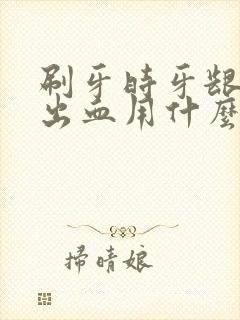 刷牙时牙龈
出血用什麼
掃晴娘